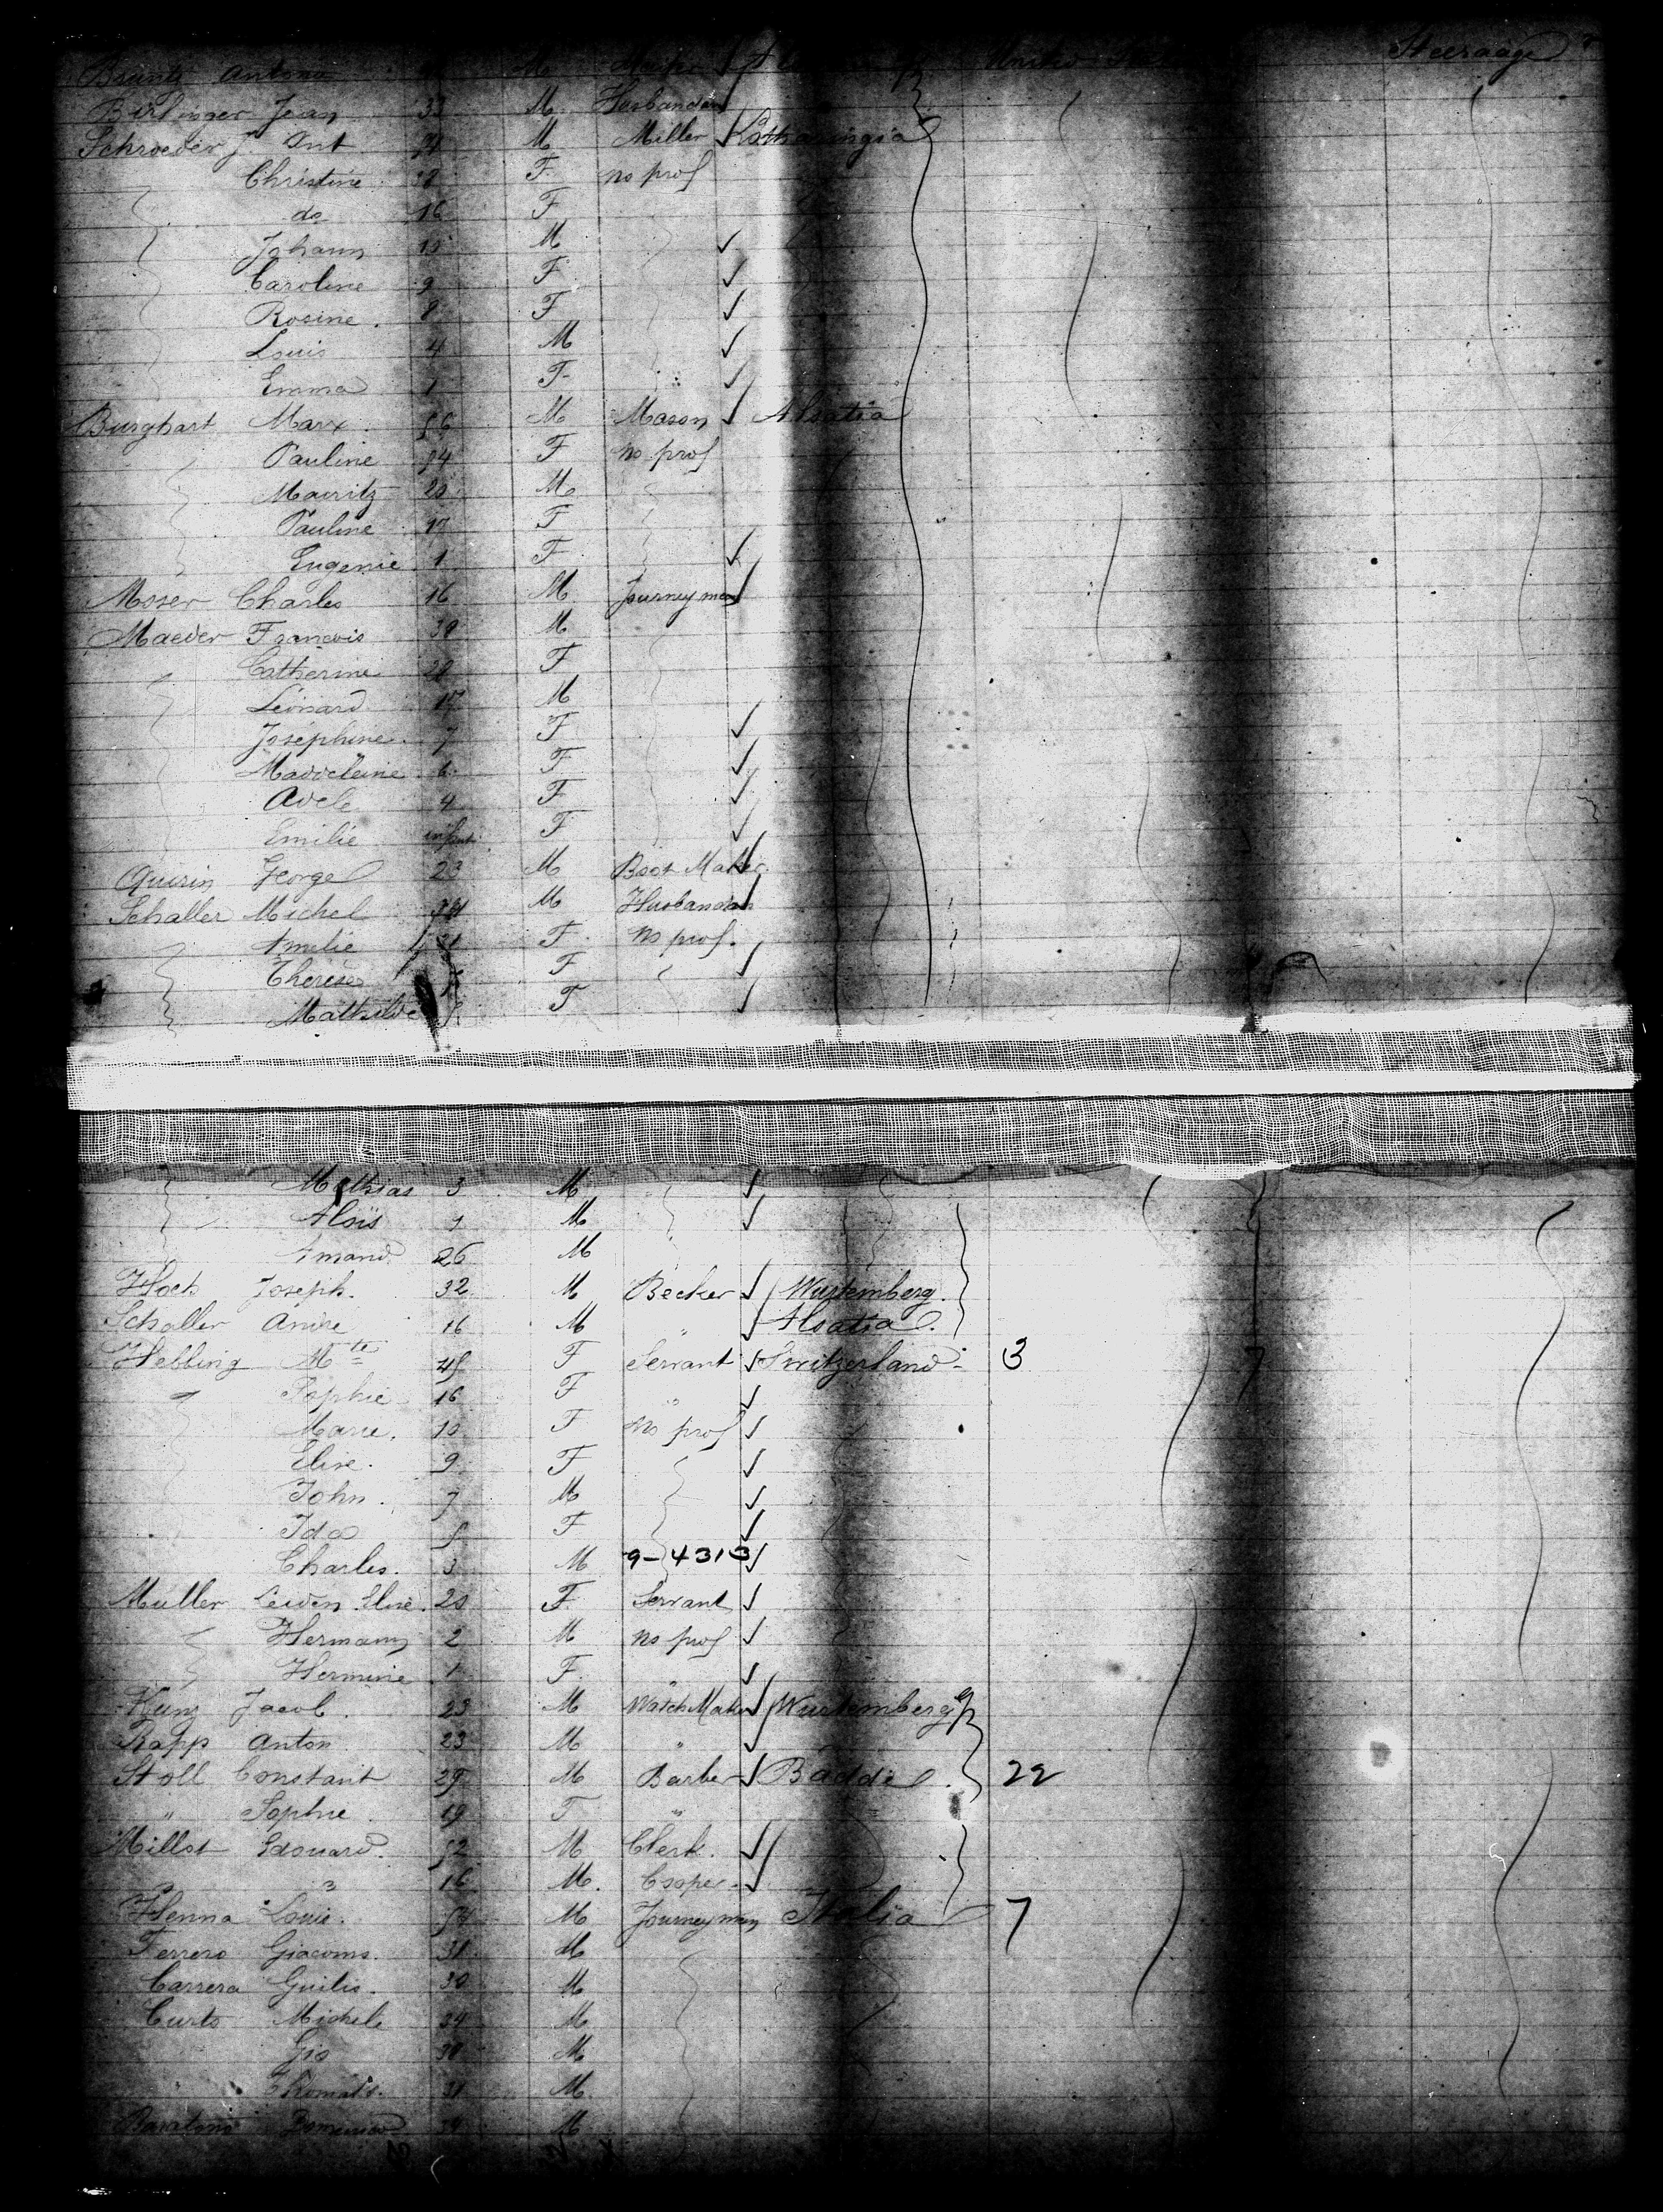 Antono M United Steeraage
Birlinger Jean 33 M Husbandm
Schroeder Jn Ant M Miller Lotharingia
Christine 38 F no prof
do 16 F
Johann 15 M
Caroline 9 F
Rosine 8 F
Louis 4 M
Emma 1 F
Burghart Marx 56 M Mason Alsatia
Pauline 54 F no prof
Mauritz 20 M
Pauline 17 F
Eugenie 1 F
Moser Charles 16 M Journeyman
Maeder Francois 39 M
Catherine 28 F
Léonard 17 M
Joséphine 7 F
Madeleine 6 F
Adele 4 F
Emilie infant F
Quirin George 23 M Boot Maker
Schaller Michel M Husbandm
Amelie F no prof.
Thérèse F
Mathilde F
Mathias 3 M
Aloïs 1 M
Amand 26 M
Hoch Joseph 32 M Becker Wurtemberg
Schaller Andre 16 M " Alsatia
Hebling Mte 45 F Servant Switzerland 3
Sophie 16 F "
Marie 10 F no prof
Elise 9 F
John 7 M
Ida 5 F
Charles 3 M 9-4313
Muller Elise 20 F Servant
Hermann 2 M no prof
Hermine 1 F "
Kunz Jacob 23 M Watch Maker Wurtemberg
Rapp Anton 23 M "
Stoll Constant 29 M Barber Badde 22
" Sophie 19 F "
Millot Edouard 52 M Clerk
" " 16 M Cooper
Henna Louis 54 M Journeyman Italia 7
Ferrero Giacomo 31 M
Carrera Guilio 30 M
Curto Michele 34 M
Gio 38 M
Thomas 31 M
Domenico 34 M